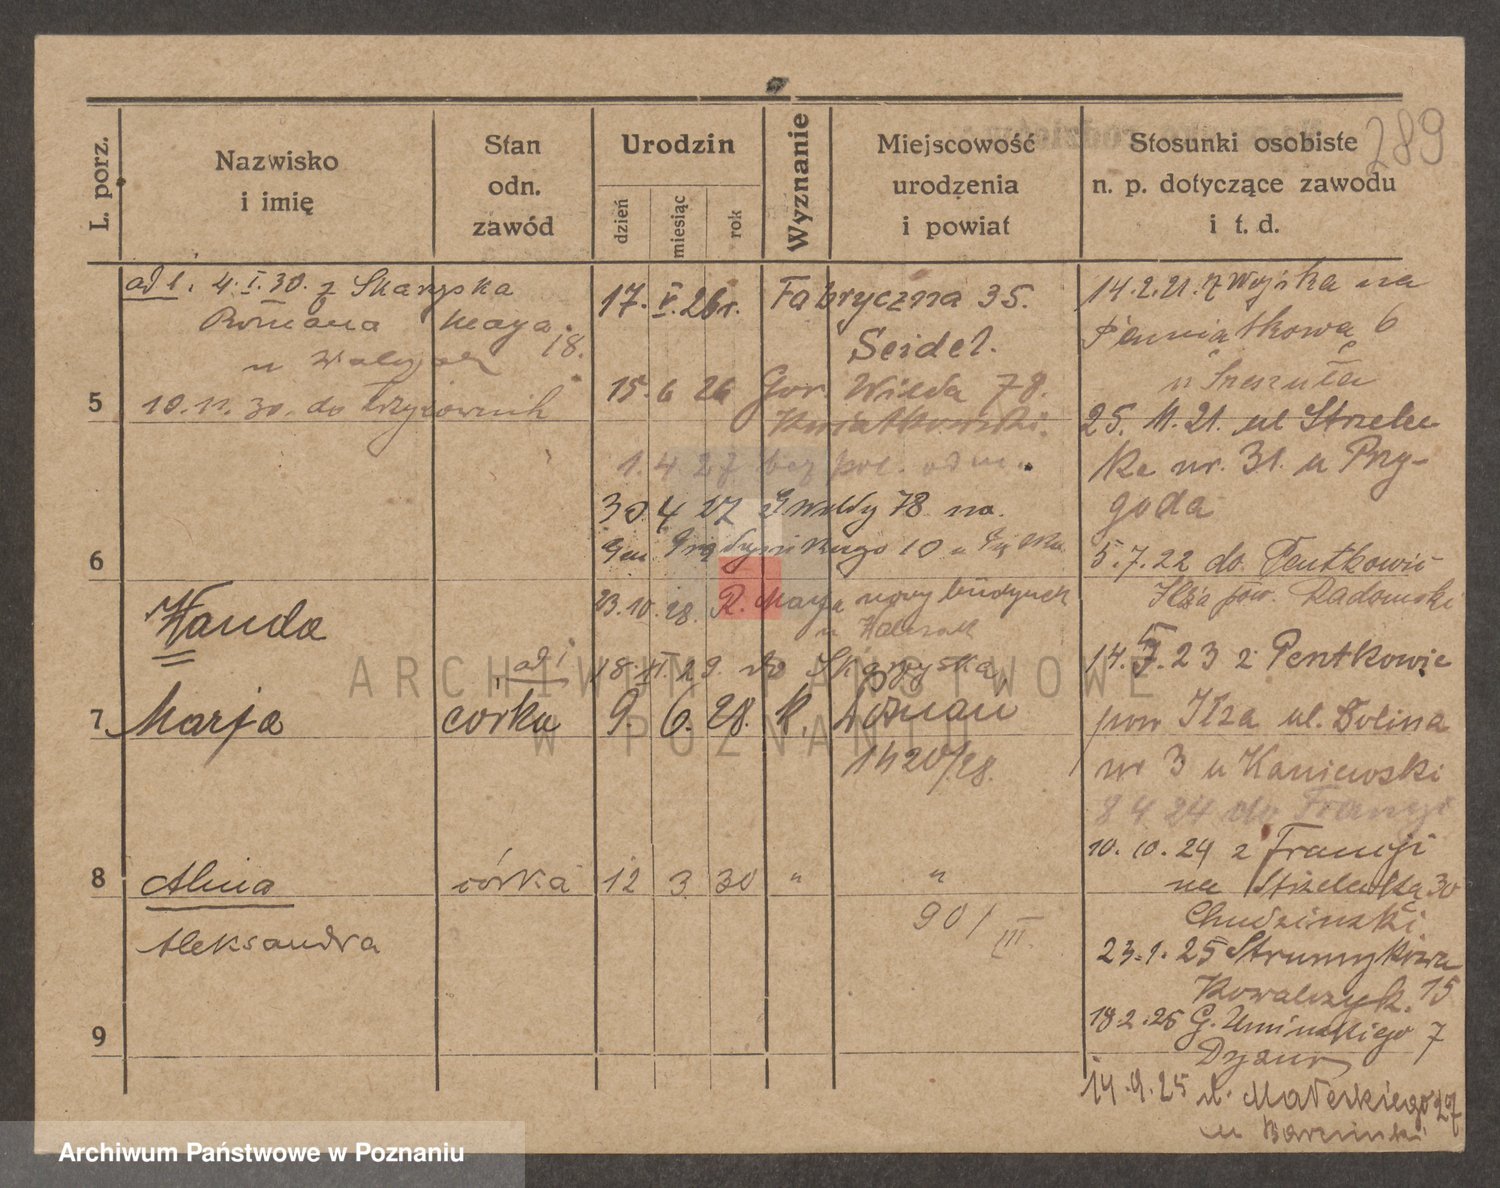 289
L. porz.
Nazwisko
i imię
Stan
odn.
zawód
Urodzin
dzień
miesiąc
rok
Wyznanie
Miejscowość
urodzenia
i powiat
Stosunki osobiste
n. p. dotyczące zawodu
i t. d.
ad 1. 4.I.30. z Skarżyska
Romana Maya
18.
10.11.30. do
5
6
Wanda
7 Marja córka 9. 6. 28. R. Poznań
1420/28.
8 Alina córka 12 3 30 " "
901/III.
Aleksandra
9
17. V. 26r. Fabryczna 35.
Seidel.
15. 6 26 Gór. Wilda 78.
Kwiatkowski.
1. 4 27 bez pol. odm.
30. 4 27 G Wildy 78 na
10 u
23.10.28. R. Maya nowy budynek
u
ad 1 18.II.29. do Skarżyska
14.2.21. z Wojska na
6
u
25. 11. 21. ul Strzelec
ka nr. 31. u Przy-
goda
5.7.22 do Pentkowic
Iłża pow. Radomski
14.5.23 z Pentkowic
pow Iłża ul. Dolina
nr 3 u Kaniewski
8 4 24 do Francji
10. 10. 24 z Francji
na Strzelecką 30
Chudziński.
23.1.25 Strumykowa
Kowalczyk. 15
18.2.25 G. Umińskiego 7
14.9.25 ul. Matejkiego 27
u
ARCHIWUM PAŃSTWOWE
W POZNANIU
Archiwum Państwowe w Poznaniu